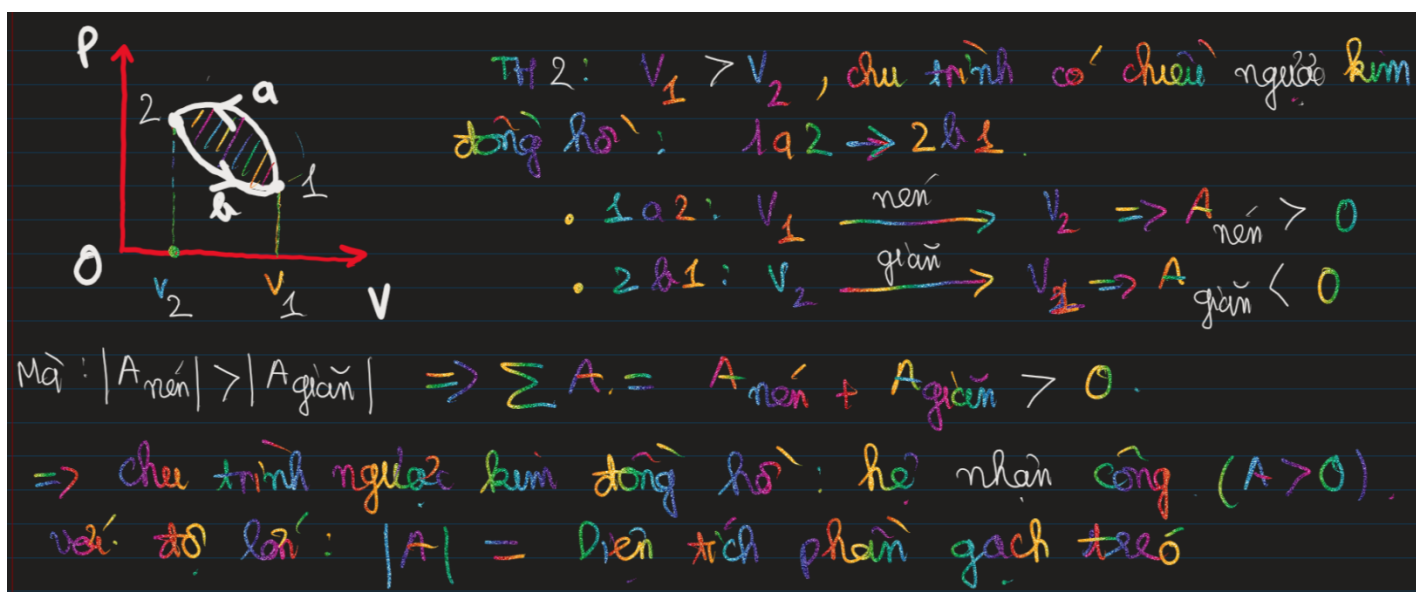 P
2
a
b
1
O
V₂
V₁
V
TH 2: V₁ > V₂, chu trình có chiều ngược kim
đồng hồ: 1a2 → 2b1.
• 1a2: V₁ nén → V₂ => A nén > 0
• 2b1: V₂ giãn → V₁ => A giãn < 0
Mà: |A nén| > |A giãn| => ∑ A = A nén + A giãn > 0.
=> chu trình ngược kim đồng hồ: hệ nhận công (A > 0).
với độ lớn: |A| = Diện tích phần gạch treó